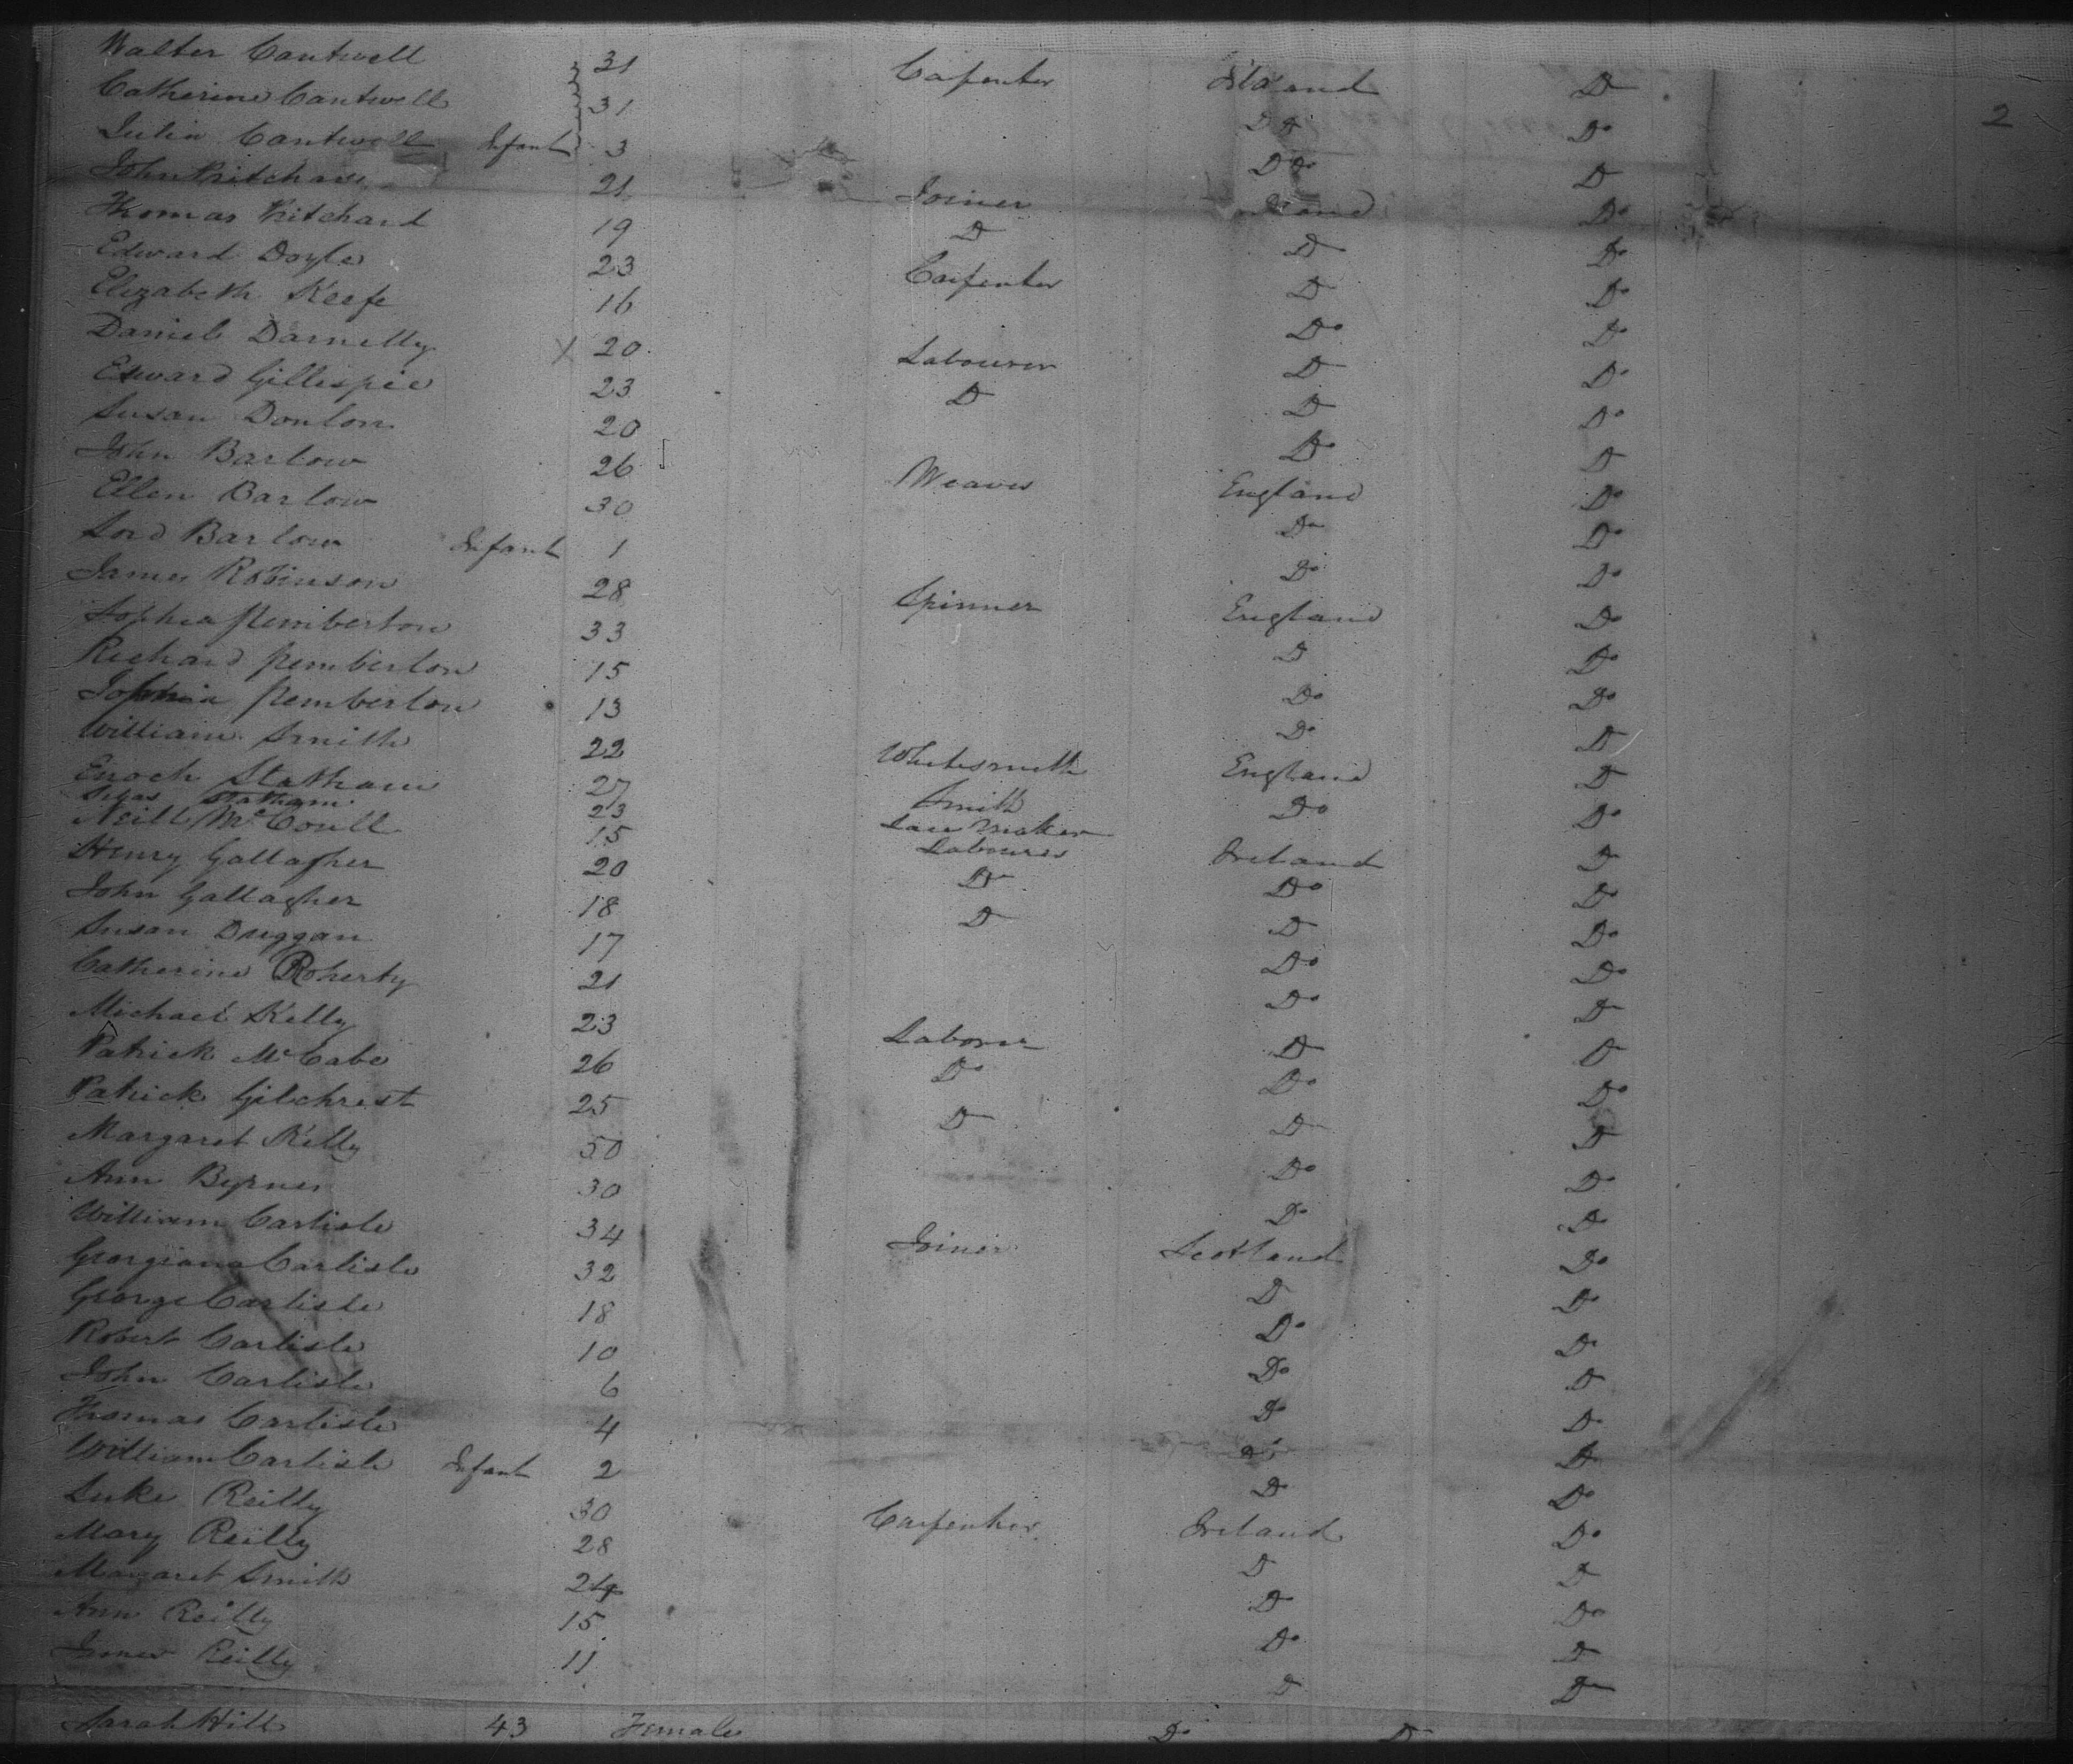 Walter Cantwell 31 Carpenter Ireland Do
Catherine Cantwell 31 Do Do 2
Julia Cantwell Infant 3 Do Do
John Pritchard 21 Joiner Do
Thomas Pritchard 19 Do Do Do
Edward Doyle 23 Carpenter Do Do
Elizabeth Keefe 16 Do Do
Daniel Darnelly X 20 Labourer Do Do
Edward Gillespie 23 Do Do Do
Susan Donlon 20 Do Do
John Barlow 26 Weaver England Do
Ellen Barlow 30 Do Do
Barlow Infant 1 Do Do
James Robinson 28 Spinner England Do
Sophia Pemberton 33 Do Do
Richard Pemberton 15 Do Do
Sophia Pemberton 13 Do Do
William Smith 22 Whitesmith England Do
Enoch Statham 27 Smith Do Do
Silas Statham 23 Lace Maker
Neill McCoull 15 Labourer Ireland Do
Henry Gallagher 20 Do Do Do
John Gallagher 18 Do Do Do
Susan Duggan 17 Do Do
Catherine Roherty 21 Do Do
Michael Kelly 23 Laborer Do Do
Patrick McCabe 26 Do Do Do
Patrick Gilchrest 25 Do Do Do
Margaret Kelly 50 Do Do
Ann Byrnes 30 Do Do
William Carlisle 34 Joiner Scotland Do
Georgiana Carlisle 32 Do Do
George Carlisle 18 Do Do
Robert Carlisle 10 Do Do
John Carlisle 6 Do Do
Thomas Carlisle 4 Do Do
William Carlisle Infant 2 Do Do
Luke Reilly 30 Carpenter Ireland Do
Mary Reilly 28 Do Do
Margaret Smith 24 Do Do
Ann Reilly 15 Do Do
James Reilly 11 Do Do
Sarah Hill 43 Female Do Do